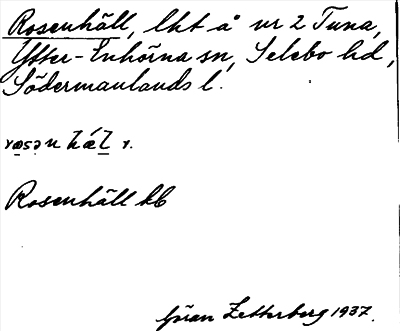 Rosenhäll, lht å nr 2 Tuna,
Ytter-Enhörna sn, Selebo hd,
Södermanlands l.
Rosenhäll kb
Göran Zetterberg 1937.